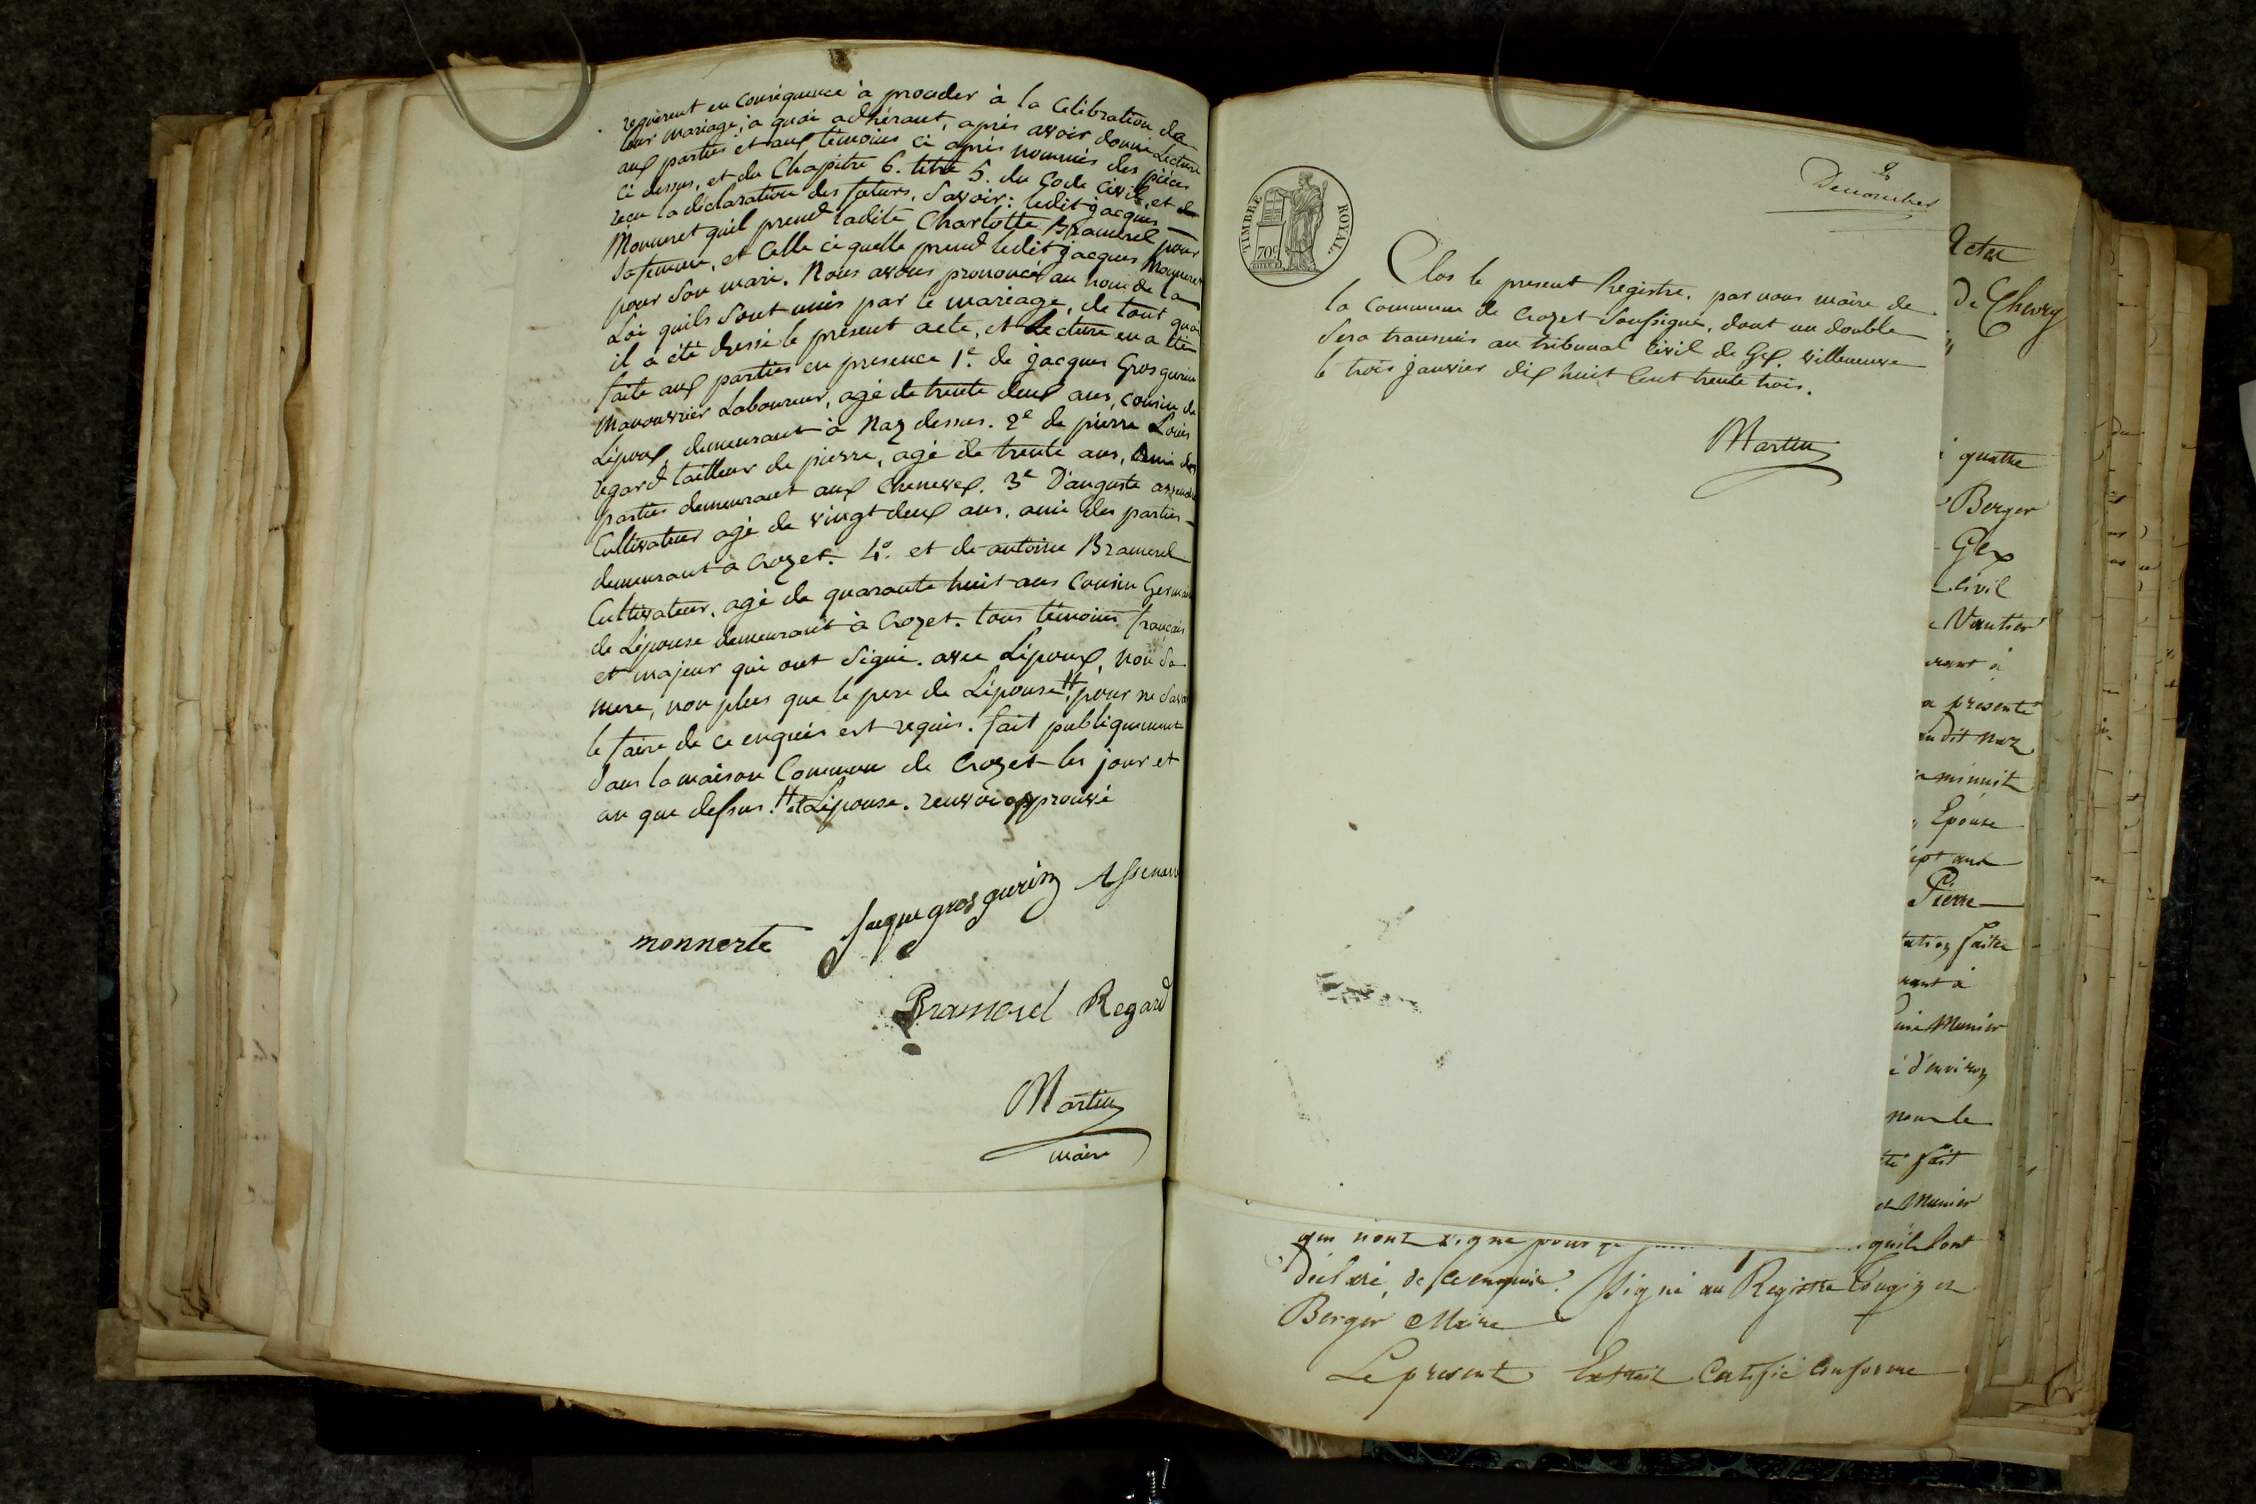 requerent en conséquence à proceder à la celébration de
leur mariage; a quoi adhérant, après avoir donné Lecture
aux parties et aux témoins ci après nommés des pièces
ci dessus, et du Chapitre 6. titre 5. du Code Civil, et
reçu la déclaration des futurs, Savoir: ledit jacques
Monneret quil prend ladite Charlotte Bramerel pour
Sa femme, et Celle ci quelle prend ledit jacques Monneret
pour Son mari. Nous avons prononcé au nom de la
Loi quils Sont unis par le mariage, de tout quoi
il a été dressé le présent acte, et Lecture en a été
faite aux parties en presence 1e. de jacques Gros gurin
Manouvrier Laboureur, agé de trente deux ans, cousin de
Lépoux demeurant à Naz dessus. 2e de pierre Louis
regard tailleur de pierre, agé de trente ans, ami des
parties demeurant aux Cheneves. 3e D'auguste
Cultivateur agé de vingt deux ans. ami des parties
demeurant à Crozet. 4º. et de antoine Bramerel
Cultivateur, agé de quarante huit ans Cousin Germain
de Lépouse demeurant à Crozet. tous témoins français
et majeur qui ont Signé. avec Lépoux, non Sa
mere, non plus que le pere de Lépouse, pour ne Savoir
le faire de ce enquis est requis. fait publiquement
dans la maison Commune de Crozet les jour et
an que dessus. et Lépouse. renvoi approuvé
monnerte Jaque gros gurin Assenar
Bramerel Regard
Martin
maire
TIMBRE ROYAL.
70c
Clos le present Registre. par nous maire de
la Commune de Crozet Soussigné, dont un double
Sera transmis au tribunal Civil de Gex. villeneuve
le trois janvier dix huit Cent trente trois.
Martin
de Chevry
quatre
Berger
Gex
Civil
Vautier
rant à
a presenté
minuit
Epouse
sept ans
Pierre
faite
rant à
Munier
d'environ
nous le
fait
et Munier
qui nont signé pour quils ont
déclaré, de ce enquis. Signé au Registre et
Berger Maire
Le present Extrait Certifié Conforme